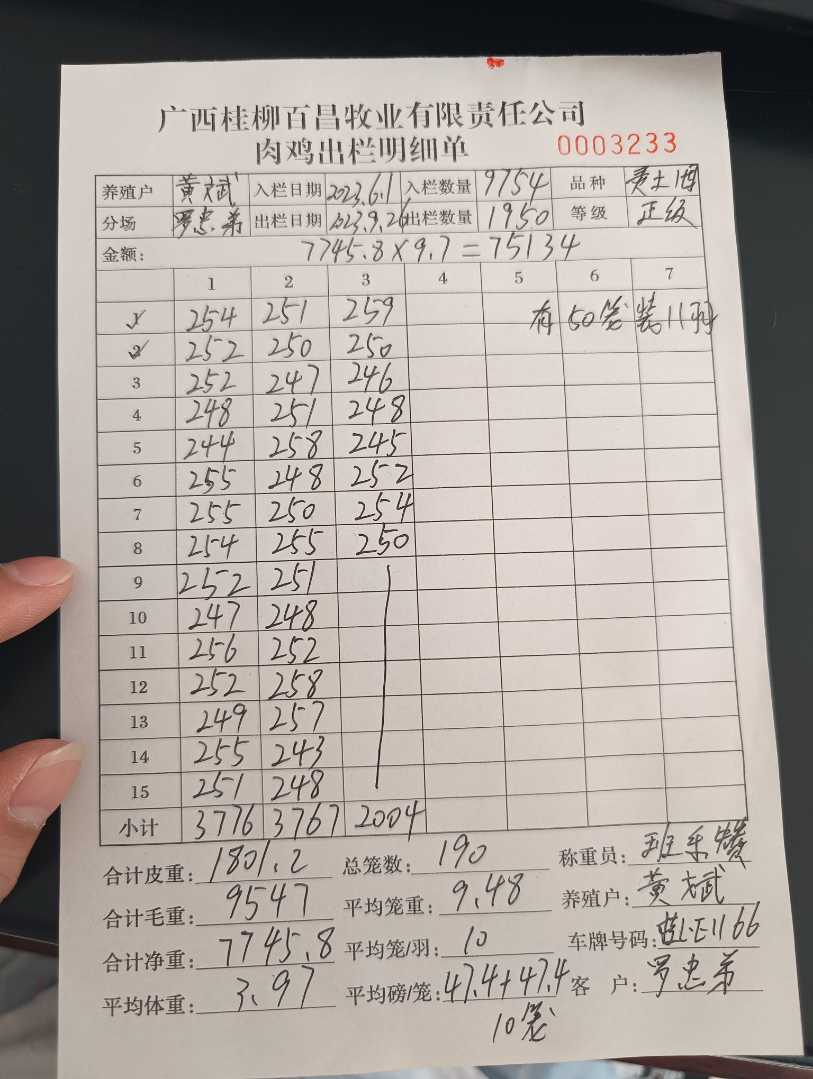 广西桂柳百昌牧业有限责任公司
肉鸡出栏明细单 0003233
养殖户 黄斌 入栏日期 2023.6.1 入栏数量 9754 品种 黄土博
分场 罗忠弟 出栏日期 2023.9.26 出栏数量 1950 等级 正级
金额: 7745.8×9.7=75134
1 2 3 4 5 6 7
1 254 251 259 有50笼装11羽
2 252 250 250
3 252 247 246
4 248 251 248
5 244 258 245
6 255 248 252
7 255 250 254
8 254 255 250
9 252 251
10 247 248
11 256 252
12 252 258
13 249 257
14 255 243
15 251 248
小计 3776 3767 2004
合计皮重: 1801.2 总笼数: 190 称重员: 班
合计毛重: 9547 平均笼重: 9.48 养殖户: 黄斌
合计净重: 7745.8 平均笼/羽: 10 车牌号码: 桂L·E1166
平均体重: 3.97 平均磅/笼: 47.4+47.4 客户: 罗忠弟
10笼